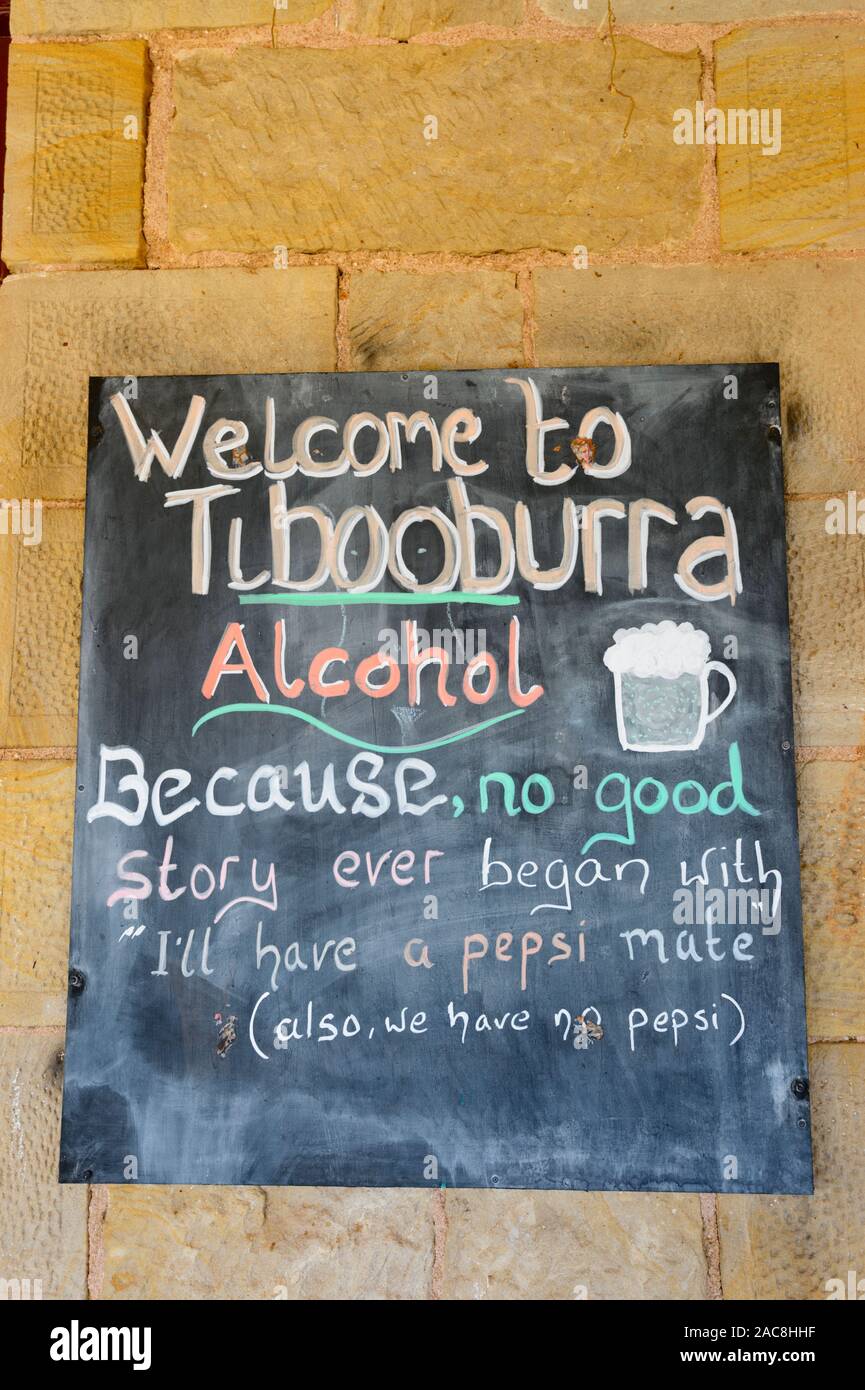 Welcome to
Tibooburra
Alcohol
Because, no good
story ever began with
"I'll have a pepsi mate"
(also, we have no pepsi)
alamy
alamy
a
a
a
alamy
Image ID: 2AC8HHF
www.alamy.com